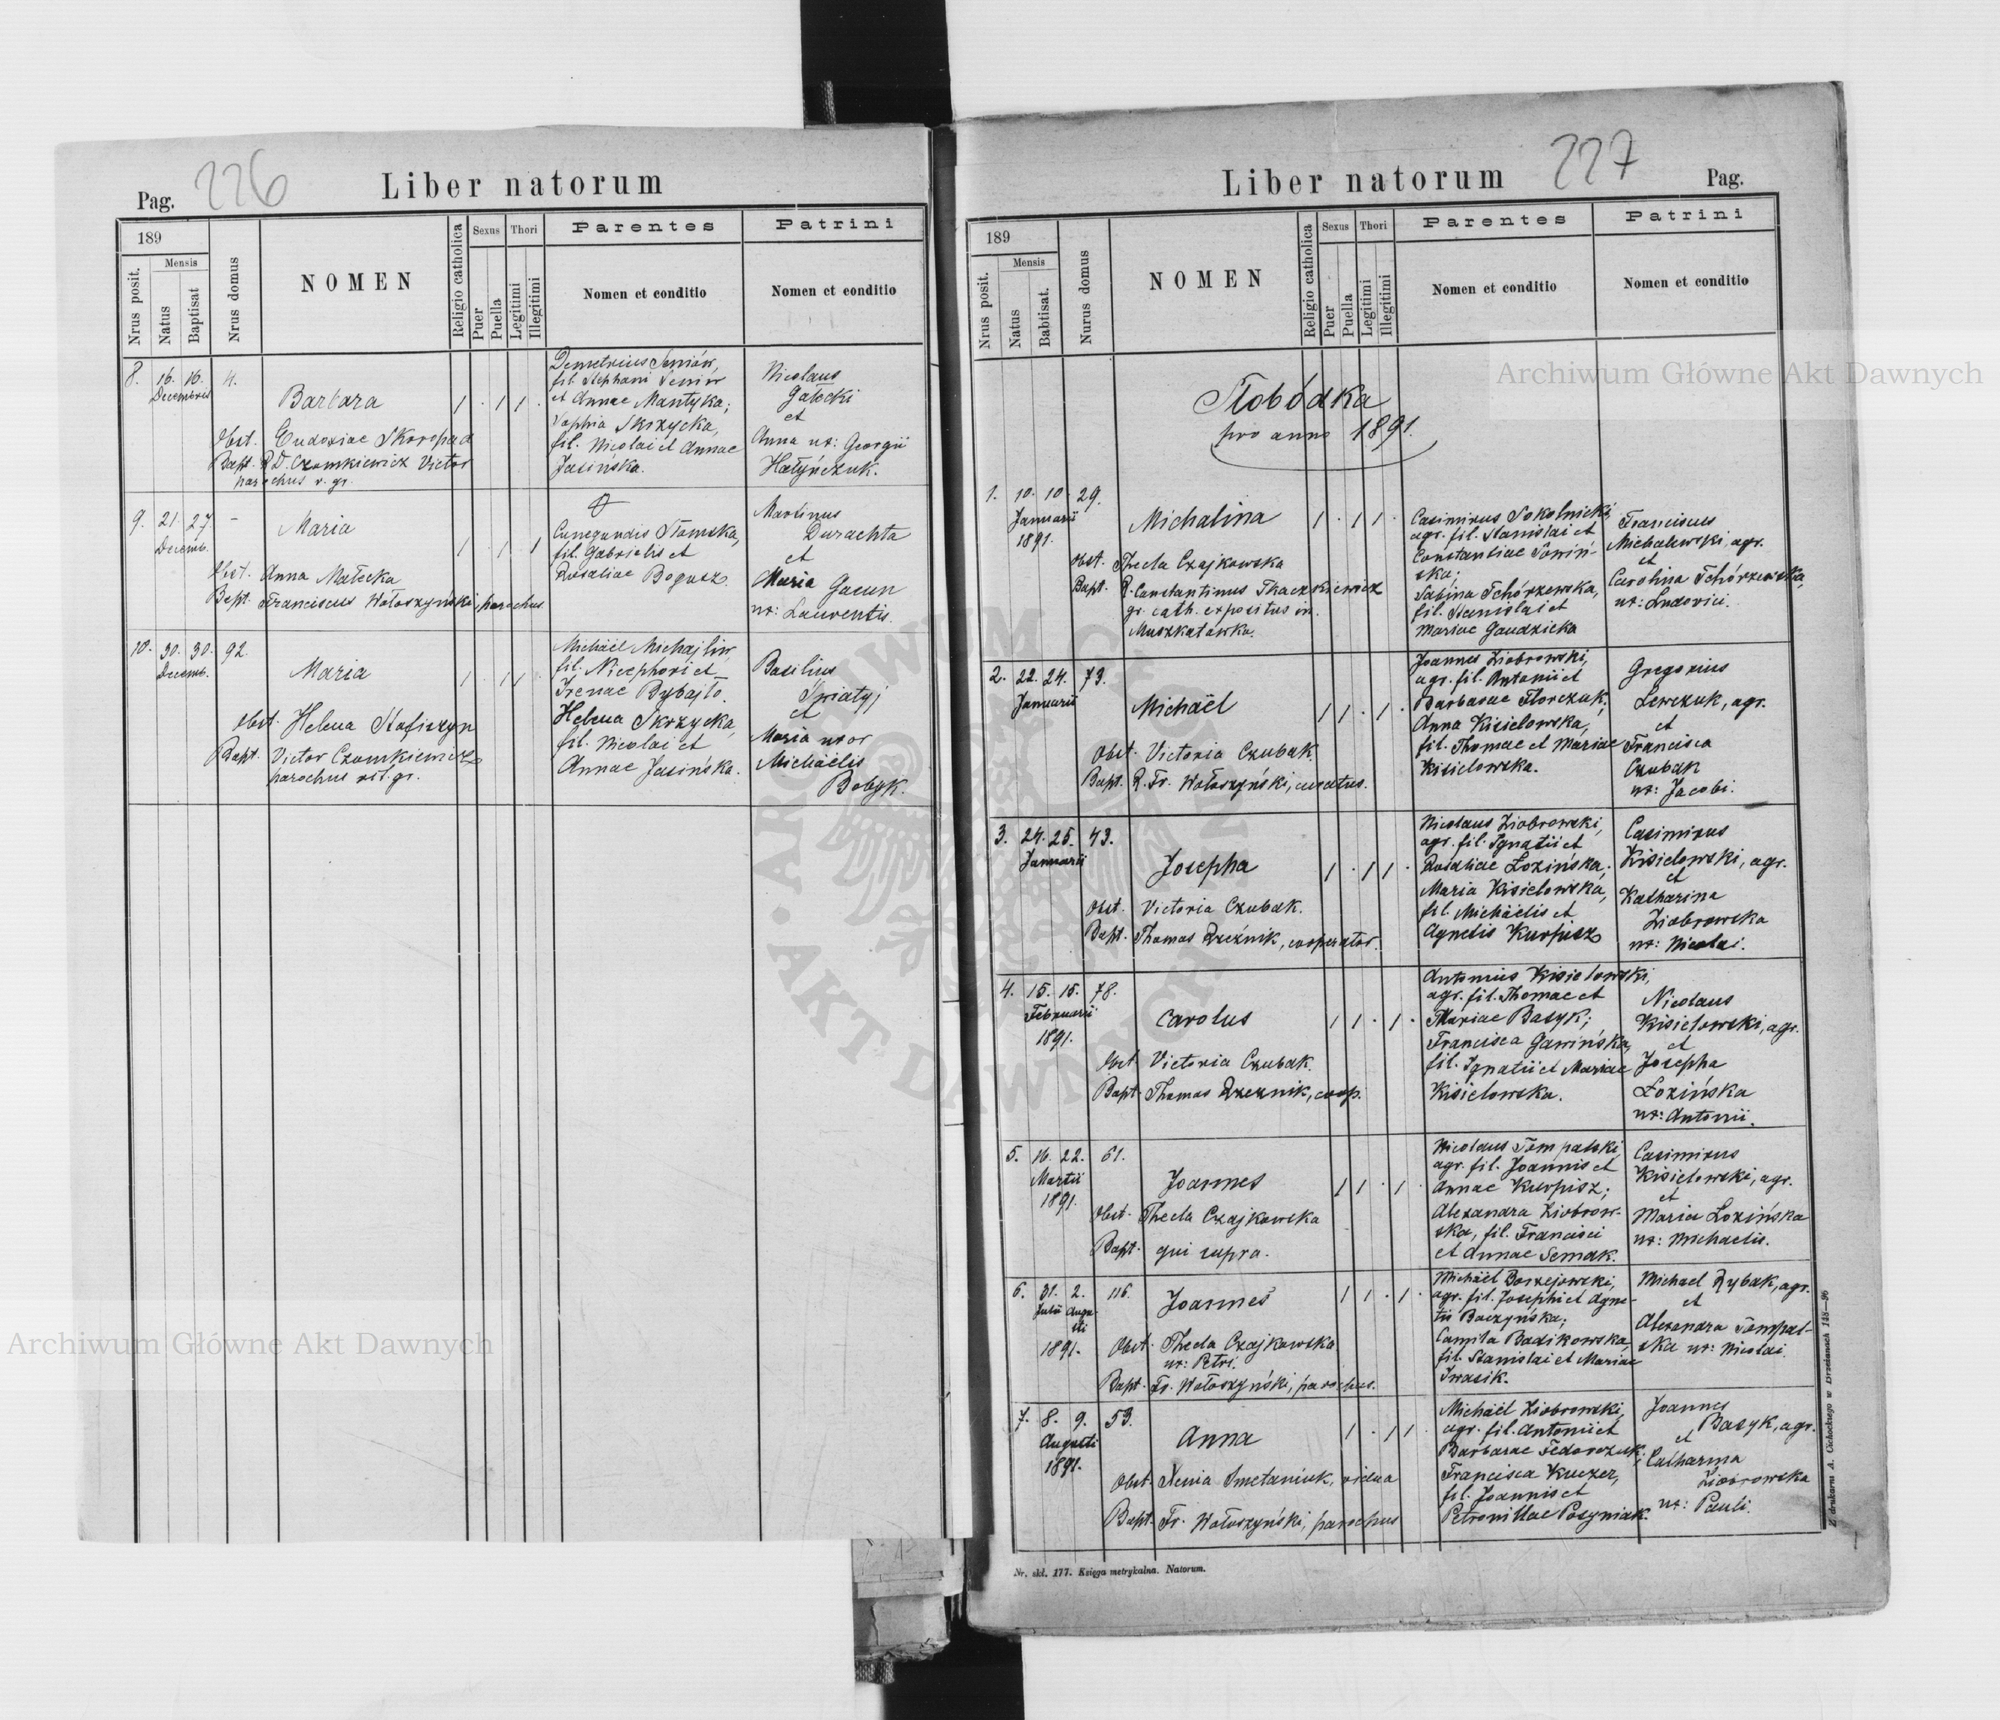 226
Pag.
Liber natorum
189
Mensis
Nrus posit.
Natus
Baptisat
Nrus domus
NOMEN
Religio catholica
Sexus
Puer
Puella
Thori
Legitimi
Illegitimi
Parentes
Nomen et conditio
Patrini
Nomen et conditio
8. 16. 16. 4.
Decembris
Barbara
1 . 1 1 .
Obst. Eudoxiae Skoropad
Bapt. R.D. Czomkiewicz Victor
parochus r. gr.
Demetrius Seniów,
fil. Stephani Seniów
et Annae Mantyka;
Sophia Skrzycka,
fil. Nicolai et Annae
Jasińska.
Nicolaus
Gałecki
et
Anna ux: Georgii
Hałyńczuk.
9. 21. 27. -
Decemb.
Maria
1 . 1 . 1
Obst. Anna Małecka
Bapt. Franciscus Wołoszyński, parochus
Cunegundis Słomska,
fil. Gabrielis et
Rosaliae Bogusz
Martinus
Durachta
et
Maria Gacun
ux: Laurentii.
10. 30. 30. 92.
Decemb.
Maria
1 . 1 1
Obst. Helena Stafiszyn
Bapt. Victor Czomkiewicz
parochus rit. gr.
Michäel Michajliw,
fil. Nicephori et
Irenae Bybajło.
Helena Skrzycka,
fil. Nicolai et
Annae Jasińska.
Basilius
Światyj
et
Maria uxor
Michaëlis
Bobyk.
227
Liber natorum
Pag.
189
Mensis
Nrus posit.
Natus
Babtisat.
Nurus domus
NOMEN
Religio catholica
Sexus
Puer
Puella
Thori
Legitimi
Illegitimi
Parentes
Nomen et conditio
Patrini
Nomen et conditio
Słobódka
pro anno 1891.
1. 10. 10. 29.
Januarii
1891.
Michalina
1 . 1 1 .
Obst. Thecla Czajkowska
Bapt. R. Constantinus Tkaczkiewicz
gr. cath. expositus in
Muszkatówka.
Casimirus Sokolnicki,
agr. fil. Stanislai et
Constantiae Sowiń-
ska;
Sabina Tchórzewska,
fil. Stanislai et
Mariae Gaudzicka
Franciscus
Michalewski, agr.
et
Carolina Tchórzewska,
ux: Ludovici.
2. 22. 24. 73.
Januarii
Michaël
1 1 . 1 .
Obst. Victoria Czubak.
Bapt. R. Fr. Wołoszyński, curatus.
Joannes Ziobrowski,
agr. fil. Antonii et
Barbarae Florczuk;
Anna Kisielowska,
fil. Thomae et Mariae
Kisielowska.
Gregorius
Lewczuk, agr.
et
Francisca
Czubak
ux: Jacobi.
3. 24. 25. 43.
Januarii
Josepha
1 . 1 1 .
Obst. Victoria Czubak.
Bapt. Thomas Rzeźnik, cooperator.
Nicolaus Ziobrowski,
agr. fil. Ignatii et
Rosaliae Łozińska;
Maria Kisielowska,
fil. Michäelis et
Agnetis Kurpisz
Casimirus
Kisielowski, agr.
et
Katharina
Ziobrowska
ux: Nicolai.
4. 15. 15. 78.
Februarii
1891.
Carolus
1 1 . 1 .
Obst. Victoria Czubak.
Bapt. Thomas Rzeznik, coop.
Antonius Kisielowski,
agr. fil. Thomae et
Mariae Basyk;
Francisca Gawińska,
fil. Ignatii et Mariae
Kisielowska.
Nicolaus
Kisielowski, agr.
et
Josepha
Łozińska
ux: Antonii.
5. 16. 22. 61.
Martii
1891.
Joannes
1 1 . 1 .
Obst. Thecla Czajkowska
Bapt. qui supra.
Nicolaus Tompalski,
agr. fil. Joannis et
Annae Kurpisz;
Alexandra Ziobrow-
ska, fil. Francisci
et Annae Semak.
Casimirus
Kisielowski, agr.
et
Maria Łozińska
ux: Michaelis.
6. 31. 2. 116.
Julii Augu-
sti
1891.
Joannes
1 1 . 1 .
Obst. Thecla Czajkowska
ux: Petri.
Bapt. Fr. Wołoszyński, parochus.
Michäel Borzejowski,
agr. fil. Josephi et Agne-
tis Baczyńska;
Camila Badikowska,
fil. Stanislai et Mariae
Iwasik.
Michael Rybak, agr.
et
Alexandra Tompal-
ska ux: Nicolai.
7. 8. 9. 53.
Augusti
1891.
Anna
1 . 1 1
Obst. Xenia Smetaniuk, vidua
Bapt. Fr. Wołoszyński, parochus
Michäel Ziobrowski,
agr. fil. Antonii et
Barbarae Fedorczuk;
Francisca Kuczer,
fil. Joannis et
Petronillae Posyniak.
Joannes
Basyk, agr.
et
Catharina
Ziobrowska
ux: Pauli.
Nr. skl. 177. Księga metrykalna. Natorum.
Z drukarni A. Cichockiego w Brzeżanach 148—96
Archiwum Główne Akt Dawnych
Archiwum Główne Akt Dawnych
ARCHIWUM GŁÓWNYCH • AKT DAWNYCH